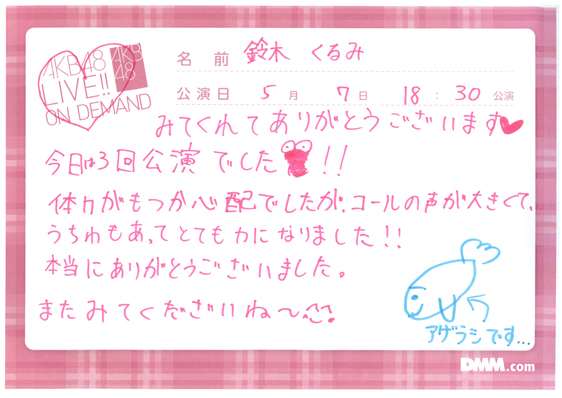 AKB48
LIVE!!
ON DEMAND
AKB
48
名前 鈴木 くるみ
公演日 5月 7日 18:30 公演
みてくれてありがとうございます
今日は3回公演でした!!
体力がもつか心配でしたが、コールの声が大きくて、
うちわもあってとても力になりました!!
本当にありがとうございました。
またみてくださいね〜
アザラシです...
DMM.com